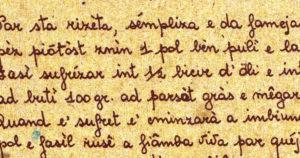 Par sta rizëta, sémpliza e da fameja
pëz piötöst znin 1 pol bèn pulì e la
Fasì sufrézar int 1/2 bicir d'öli e int
ad butì 100 gr. ad parsöt gràs e mêgar
Quand e' sufret e' cminzarà a imbiun
pol e fasìl rusè a fiâmba viva par quéj